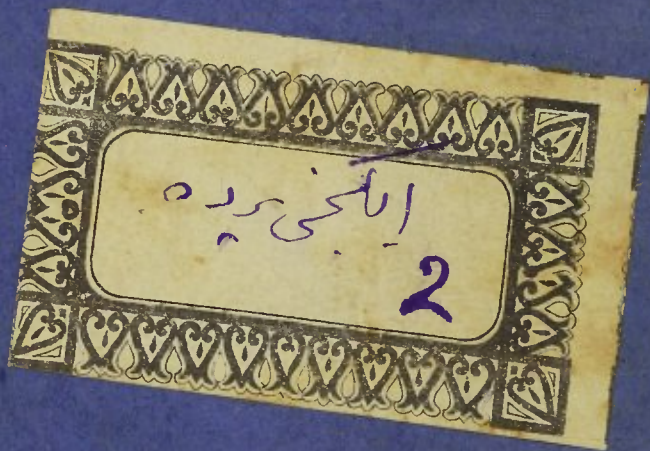 ایکنجی پرده
2